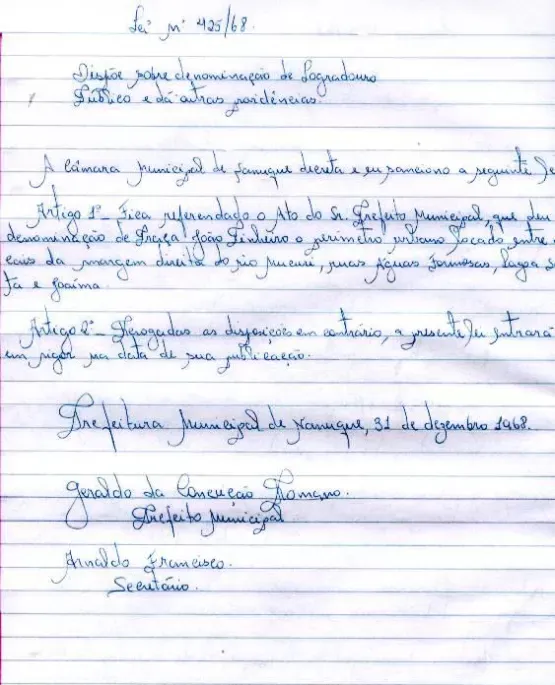 Lei nº 425/68.
Dispõe sobre denominação de Logradouro
Público e dá outras providências.
A Câmara Municipal de Nanuque decreta e eu sanciono a seguinte Le
Artigo 1º - Fica referendado o Ato do Sr. Prefeito Municipal, que deu
denominação de Praça João Pinheiro o perímetro urbano locado entre
cais da margem direita do rio Mucuri, ruas Águas Formosas, Lagoa S
ta e Joaima.
Artigo 2º - Derogadas as disposições em contrário, a presente Lei entrará
em vigor na data de sua publicação.
Prefeitura Municipal de Nanuque, 31 de dezembro 1968.
Geraldo da Conceição Romano.
Prefeito Municipal
Arnaldo Francisco.
Secretário.